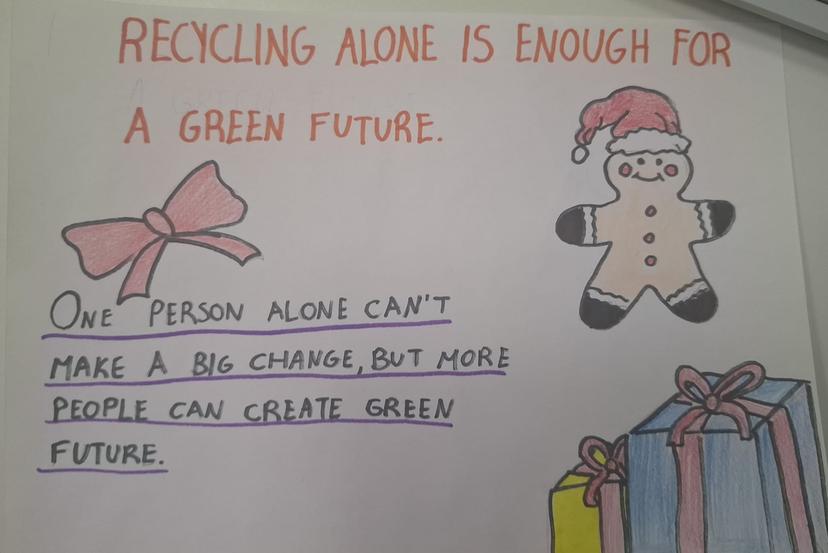 RECYCLING ALONE IS ENOUGH FOR
A GREEN FUTURE.
ONE PERSON ALONE CAN'T
MAKE A BIG CHANGE, BUT MORE
PEOPLE CAN CREATE GREEN
FUTURE.